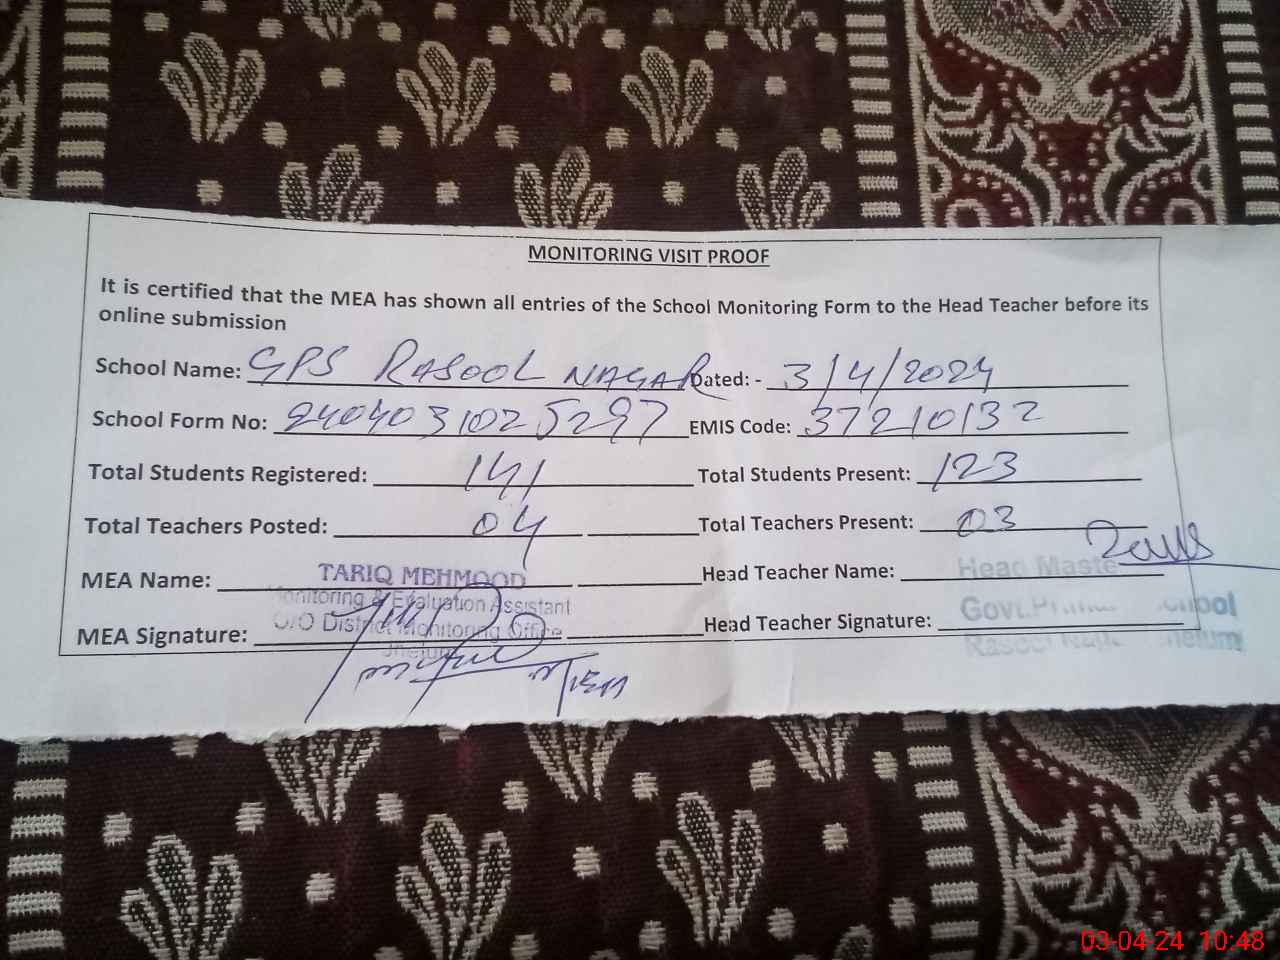 MONITORING VISIT PROOF
It is certified that the MEA has shown all entries of the School Monitoring Form to the Head Teacher before its
online submission
School Name: GPS RASOOL NAGAR Dated: - 3/4/2024
School Form No: 2404031025297 EMIS Code: 37210132
Total Students Registered: 141 Total Students Present: 123
Total Teachers Posted: 04 Total Teachers Present: 03
MEA Name: TARIQ MEHMOOD Head Teacher Name: Head Maste
Monitoring & Evaluation Assistant
MEA Signature: O/O District Monitoring Office Head Teacher Signature: Govt.
Jhelum Rasool
03-04-24 10:48